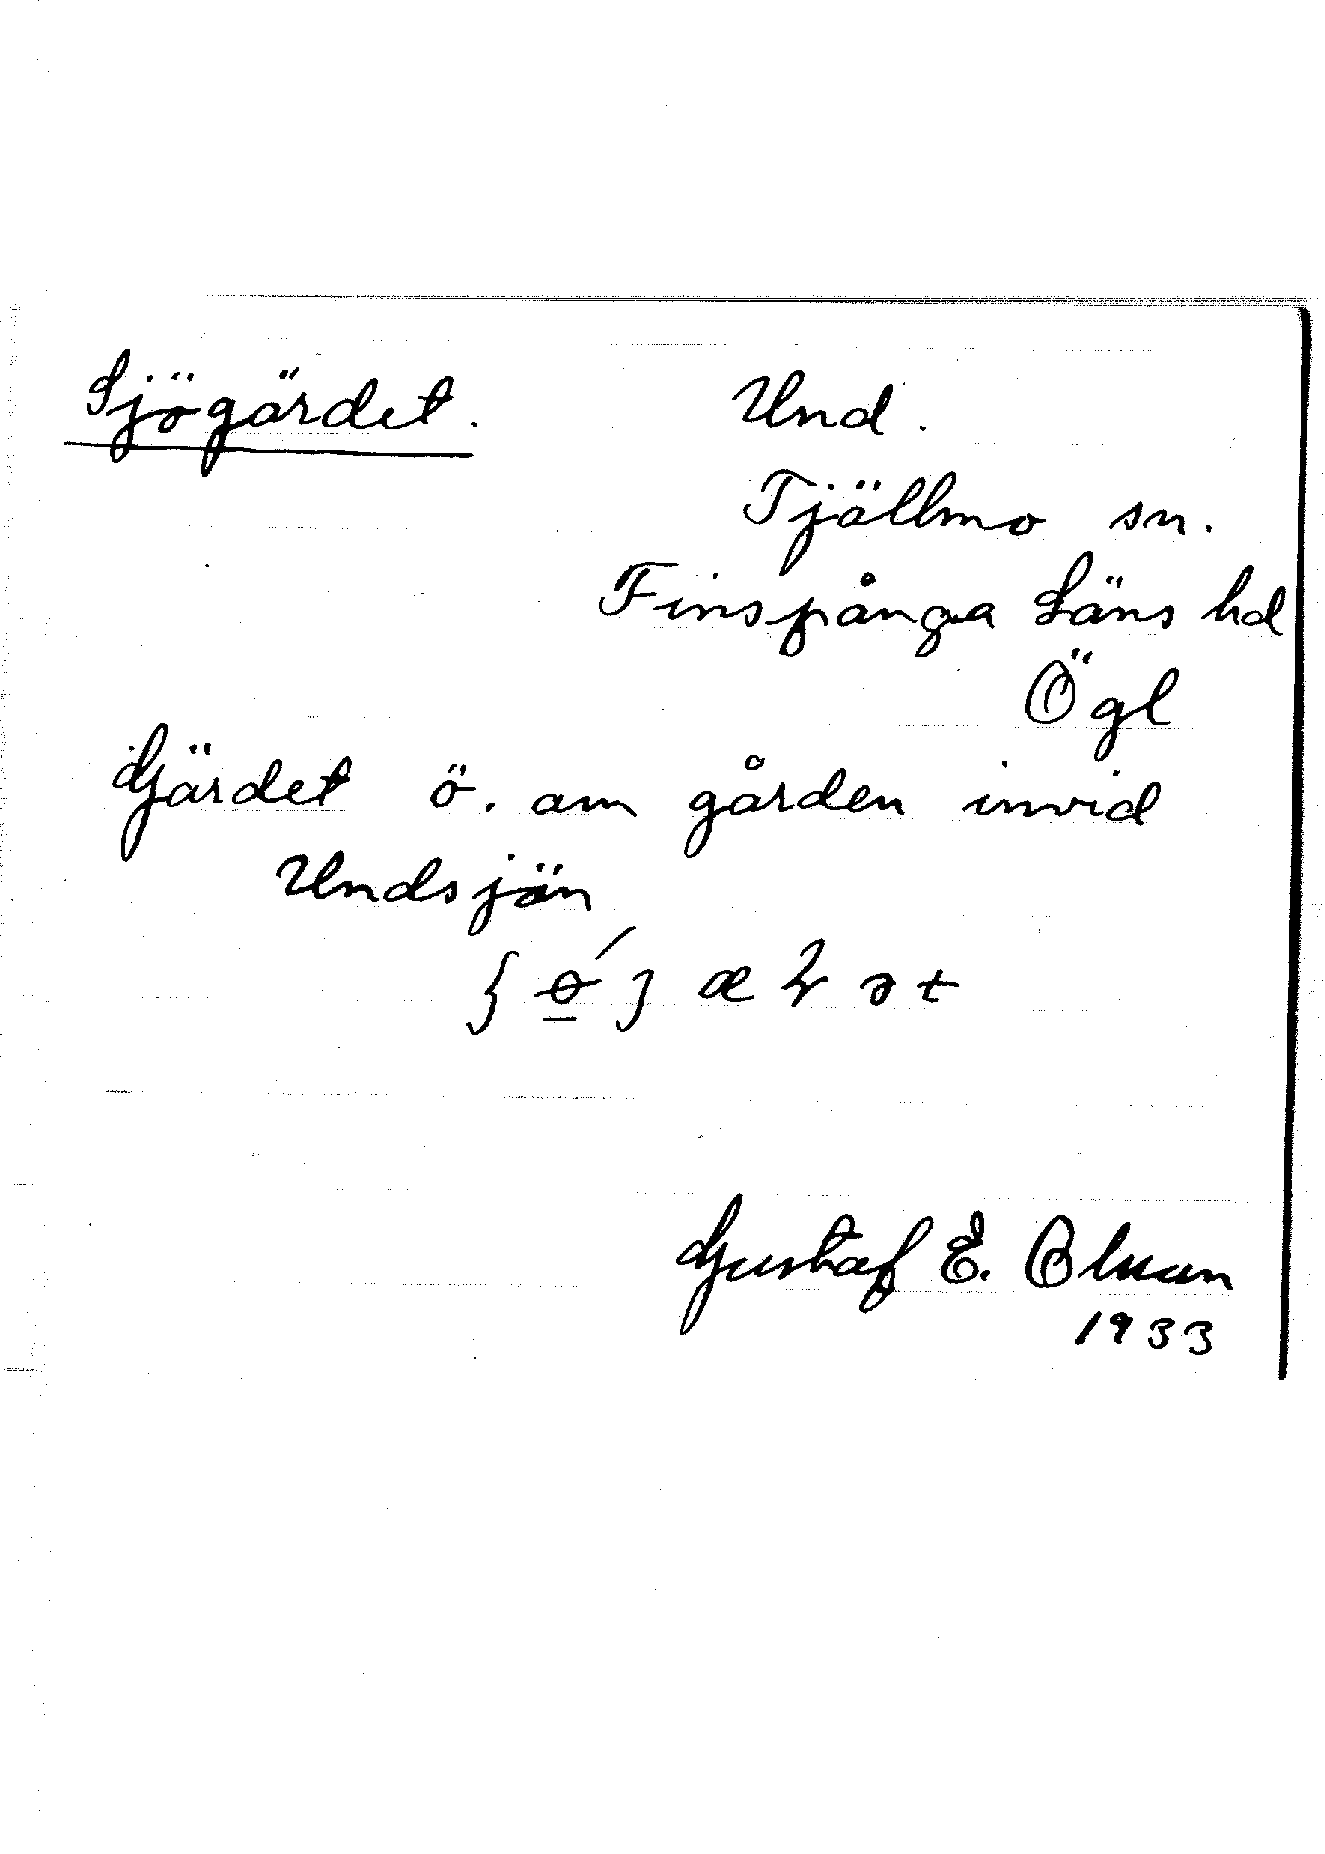 Sjögärdet. Und.
Tjällmo sn.
Finspånga Läns hd
Ögl
Gärdet ö. om gården invid
Undsjön
Gustaf E. Olsson
1933